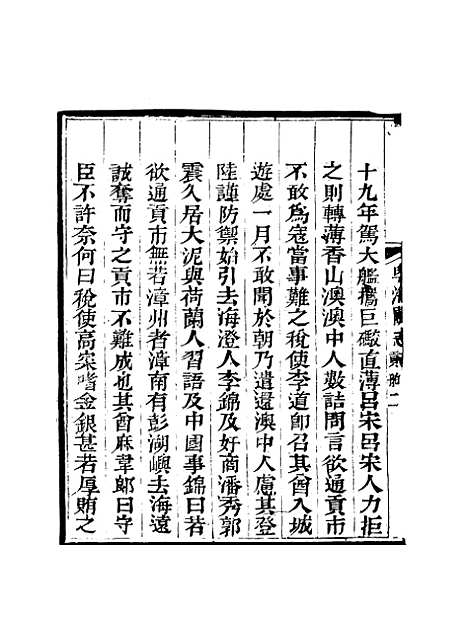 十九年駕大艦攜巨礮直薄呂宋呂宋人力拒
之則轉薄香山澳澳中人數詰問言欲通貢市
不敢爲寇當事難之稅使李道卽召其酋入城
遊處一月不敢聞於朝乃遣還澳中人慮其登
陸謹防禦始引去海澄人李錦及奸商潘秀郭
震久居大泥與荷蘭人習語及中國事錦曰若
欲通貢市無若漳州者漳南有彭湖嶼去海遠
誠奪而守之貢市不難成也其酋麻韋郞曰守
臣不許奈何曰稅使高寀嗜金銀甚若厚賄之